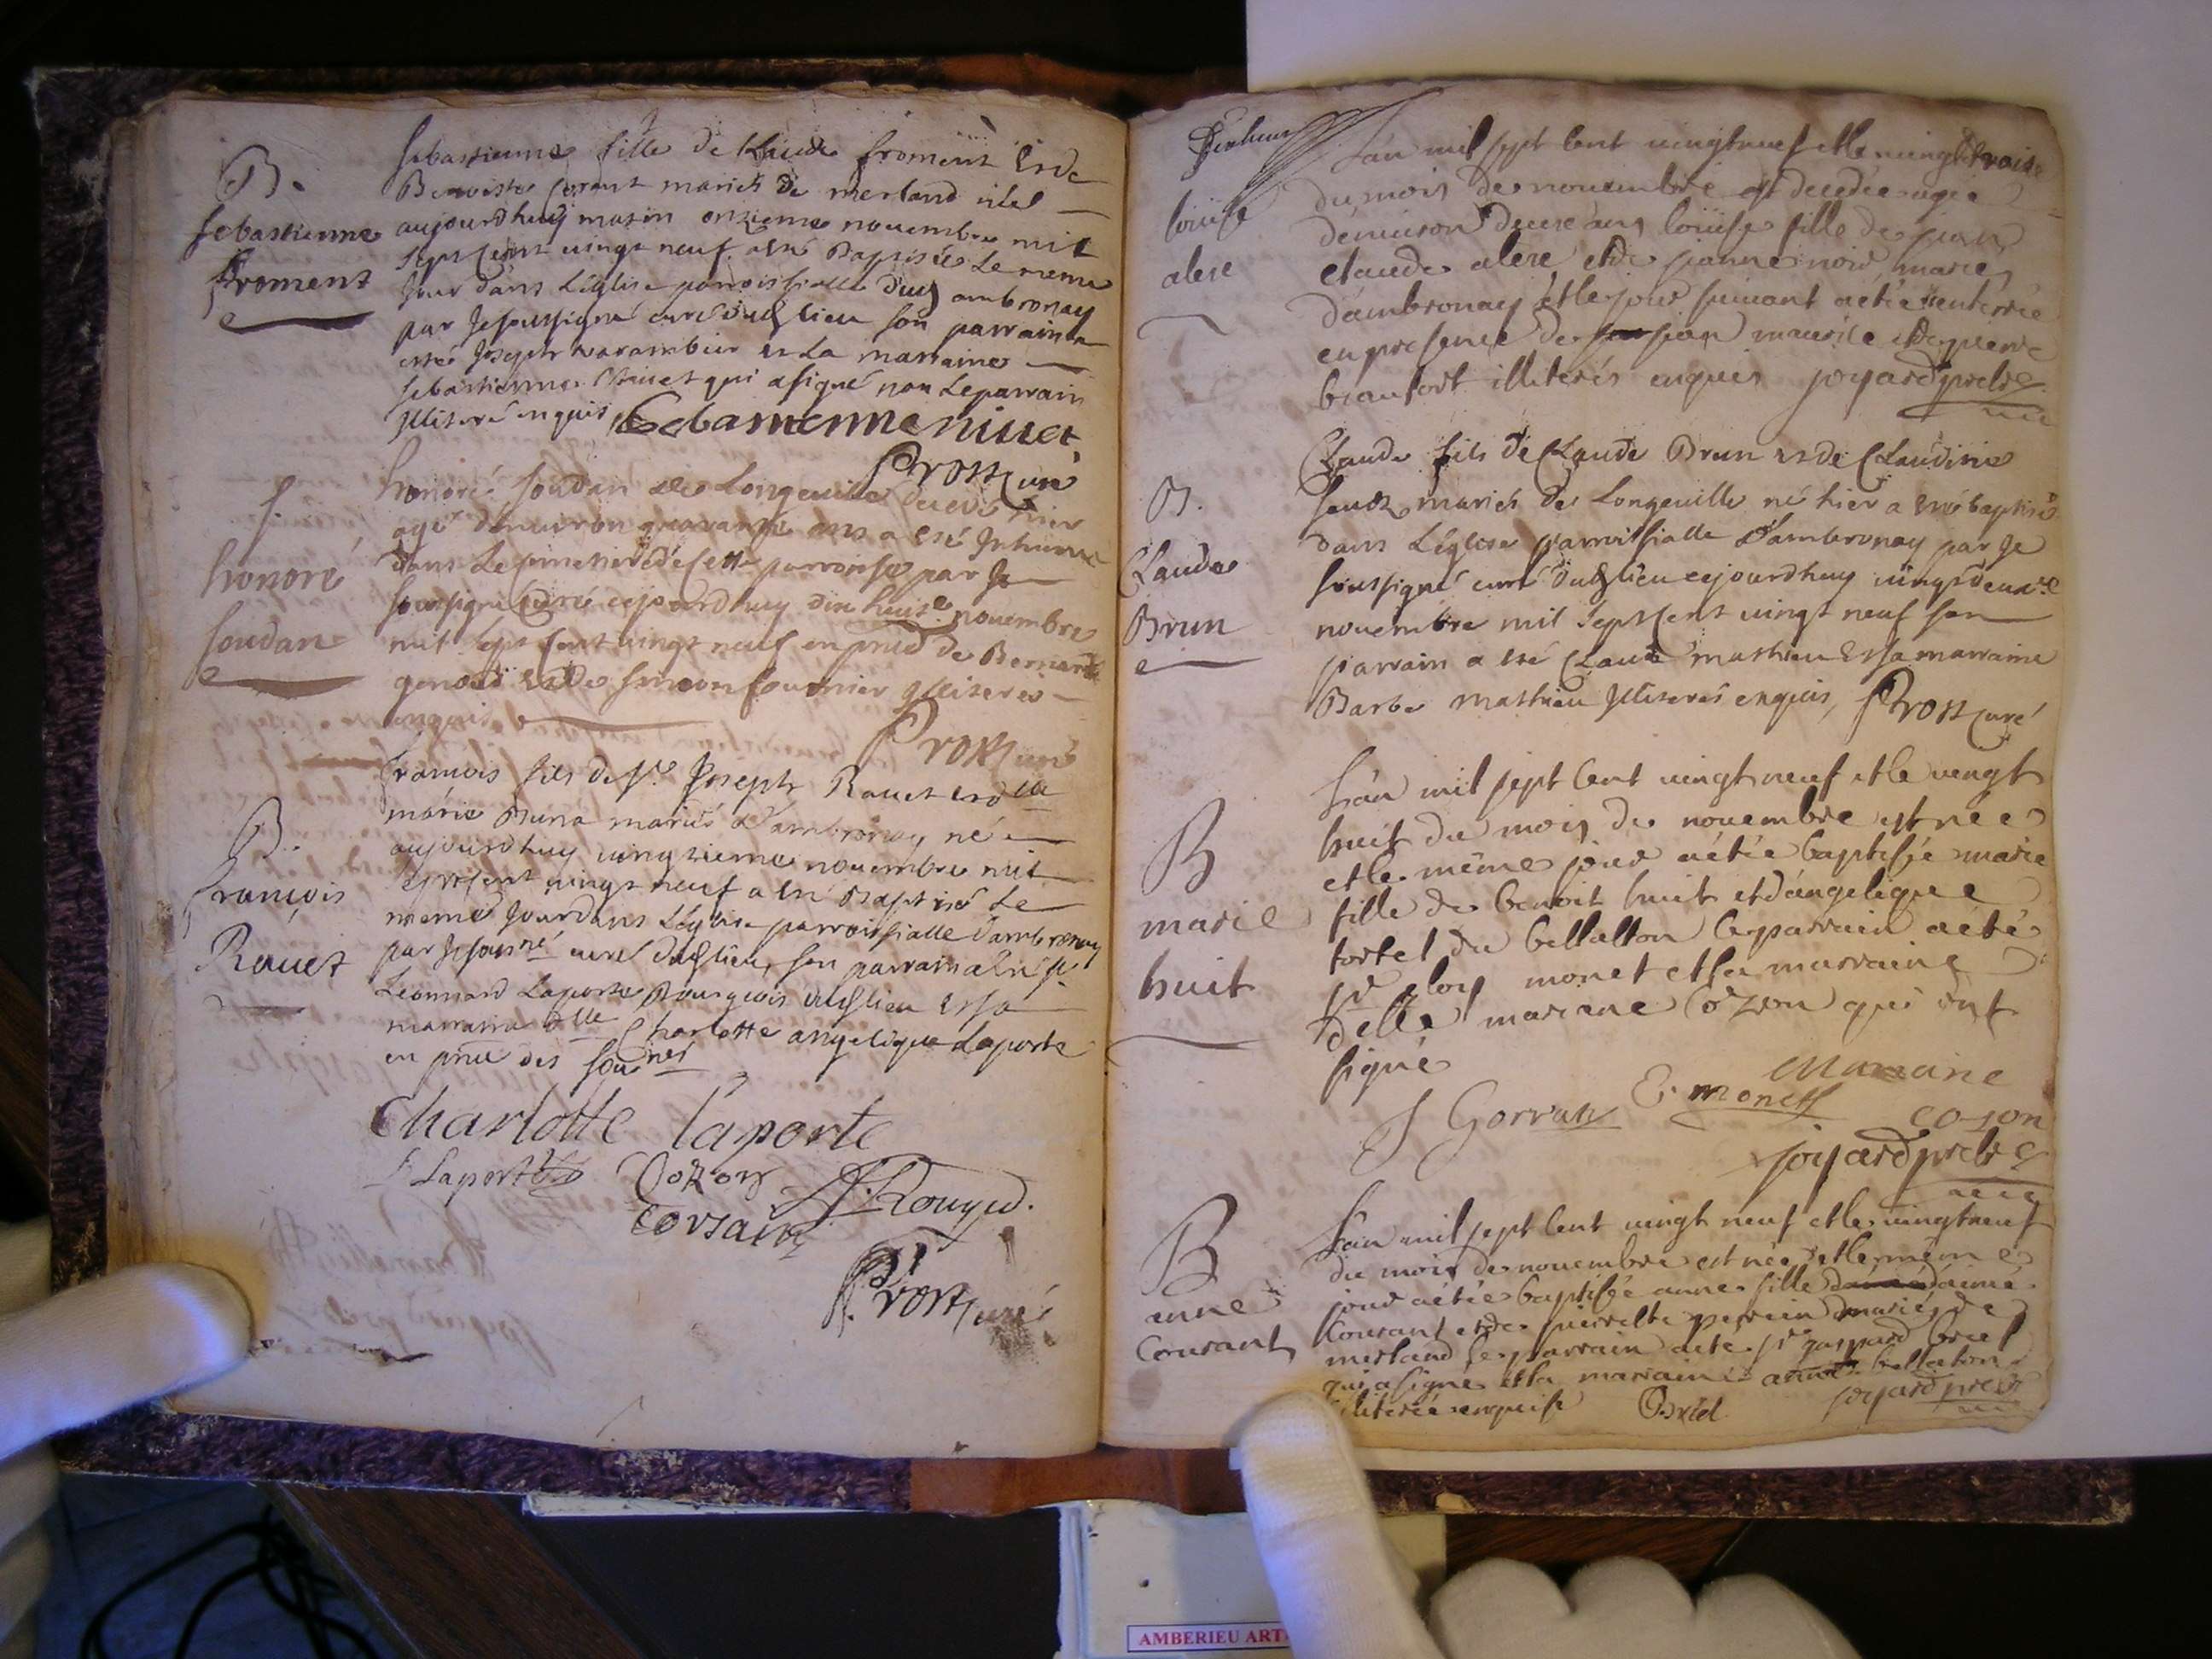 B.
Sebastienne
froment
Sebastienne fille de Klaude froment et de
Benoiste Corant mariés de merland née
aujourdhuy matin onzieme novembre mil
sept cent vingt neuf a esté Baptisée Le meme
Jour dans L'église parroissialle dud ambronay
par Je soussigné curé dud lieu son parrain a
esté Joseph et La marraine
sebastienne nivet qui a signé non Le parrain
Illiteré enquis Sebastienne nivet
Prost curé
f.
honoré
soudan
honoré soudan de Longeville decedé hier
agé d'environ quarante ans a esté Inhumé
dans Le cimetiere de Cette parroisse par Je
soussigné Curé cejourdhuy dix huite novembre
mil sept cent vingt neuf en prnce de Bernard
genod et de simeon fournier Illiterés
enquis
Prost curé
B.
françois
Ravet
françois fils de Sr Joseph Ravet et de lle
marie Buna mariés d'ambronay né
aujourdhuy vingtieme novembre mil
sept cent vingt neuf a esté Baptisé Le
meme Jour dans L'église parroissialle d'ambronay
par Je sousné curé dud lieu, son parrain a esté Sr
Leonnard Laporte Bourgeois dud lieu et sa
marraine dlle Charlotte angelique Laporte
en prnce des sousnés
Charlotte laporte
L Laporte Cozon
Corsain
Prost curé
louise
alere
L'an mil sept cent vingtneuf et le vingt trois
du mois de novembre est decedée agée
d'environ ans louise fille de jean
claude alere et de jeanne noir mariés
d'ambronay et le jour suivant a étée enterrée
en presence de jean maurice et de pierre
beaufort illiterés enquis joyard pretre
B.
Claude
Brun
Claude fils de Claude Brun et de Claudine
mariés de Longeville né hier a esté baptisé
dans L'église parroissialle d'ambronay par Je
soussigné curé dud lieu cejourdhuy vingt deuxe
novembre mil sept cent vingt neuf son
parrain a esté Claude mathieu et sa marraine
Barbe mathieu Illiterés enquis, Prost curé
B
marie
huit
L'an mil sept cent vingt neuf et le vingt
huit du mois de novembre est née
et le même jour a étée baptisée marie
fille de benoit huit et d'angelique
tortet du bellatton le parrain a été
sr eloy monet et la marraine
delle mariane Cozon qui ont
signé
Mariane
J Gorvan E. monet
co-zon
joyard pretre
B
anne
Courant
L'an mil sept cent vingt neuf et le vingtneuf
du mois de novembre est née et le même
jour a étée baptisée anne fille d'aimé
Courant et de pierrette perrin mariés de
merland le parrain a été sr gaspard briel
qui a signé et la marraine anne bellaton
illiterée enquise Briel joyard pretre
AMBERIEU ART